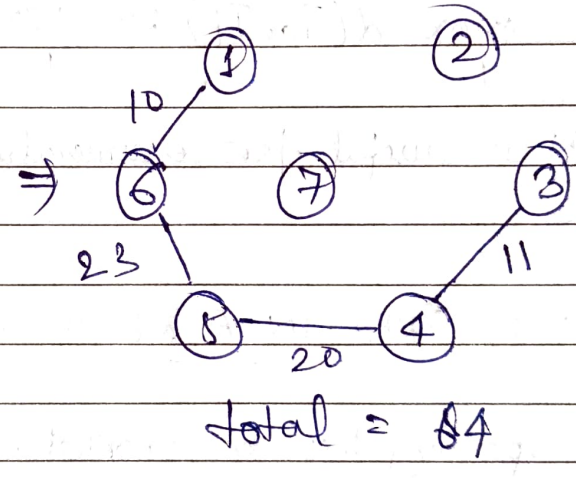 1 2
10
⇒ 6 7 3
23 11
5 4
20
total = 64